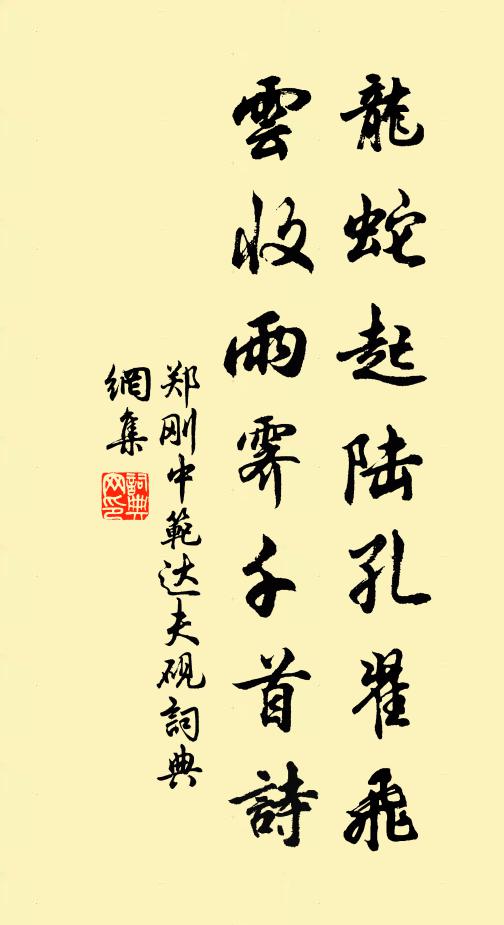 龍蛇起陆孔翟飛
雲收雨霽千首詩
郑刚中範达夫砚詞典
網集
詞典
网印